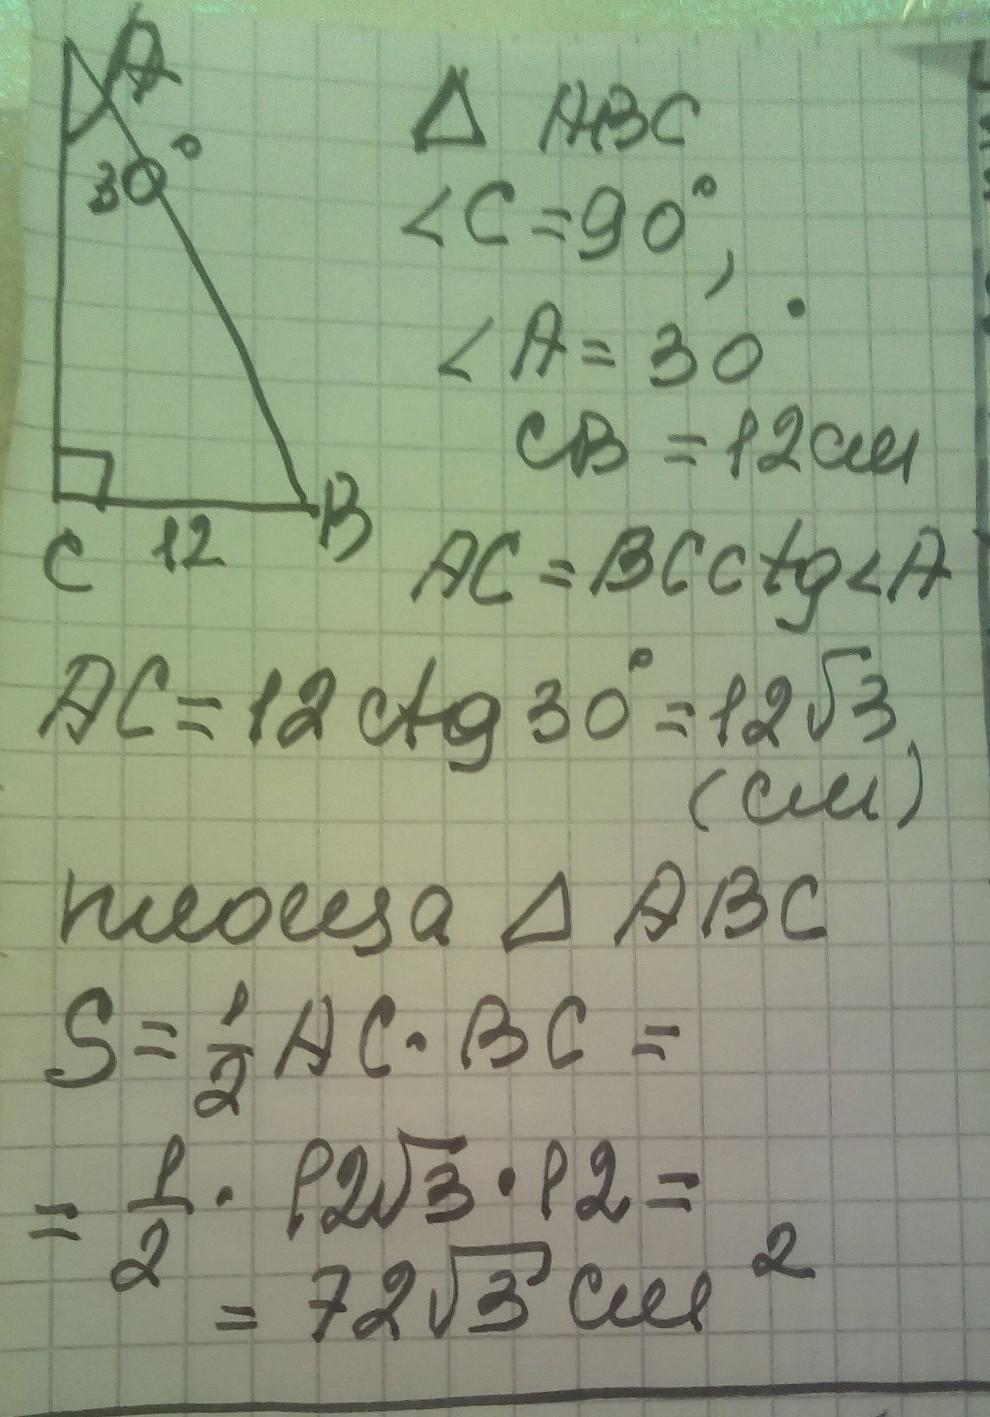 A
30°
C 12 B
△ ABC
<C = 90°,
<A = 30°
CB = 12 см
AC = BC ctg <A
AC = 12 ctg 30° = 12√3
(см)
площа △ ABC
S = 1/2 AC · BC =
= 1/2 · 12√3 · 12 =
= 72√3 см²